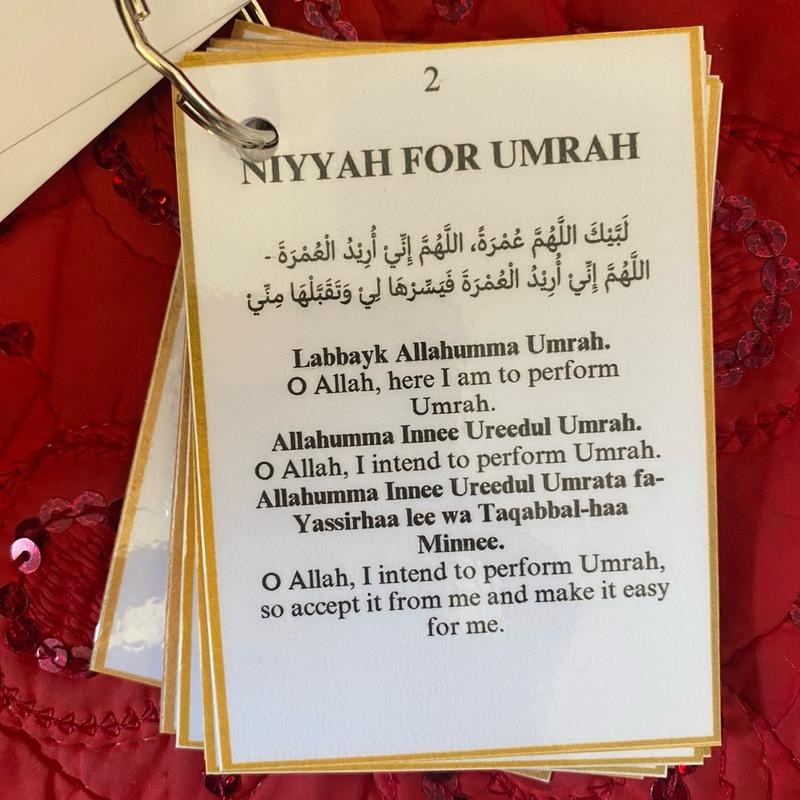 2
NIYYAH FOR UMRAH
لَبَّيْكَ اللَّهُمَّ عُمْرَةً، اللَّهُمَّ إِنِّيْ أُرِيْدُ الْعُمْرَةَ -
اللَّهُمَّ إِنِّيْ أُرِيْدُ الْعُمْرَةَ فَيَسِّرْهَا لِيْ وَتَقَبَّلْهَا مِنِّيْ
Labbayk Allahumma Umrah.
O Allah, here I am to perform
Umrah.
Allahumma Innee Ureedul Umrah.
O Allah, I intend to perform Umrah.
Allahumma Innee Ureedul Umrata fa-
Yassirhaa lee wa Taqabbal-haa
Minnee.
O Allah, I intend to perform Umrah,
so accept it from me and make it easy
for me.